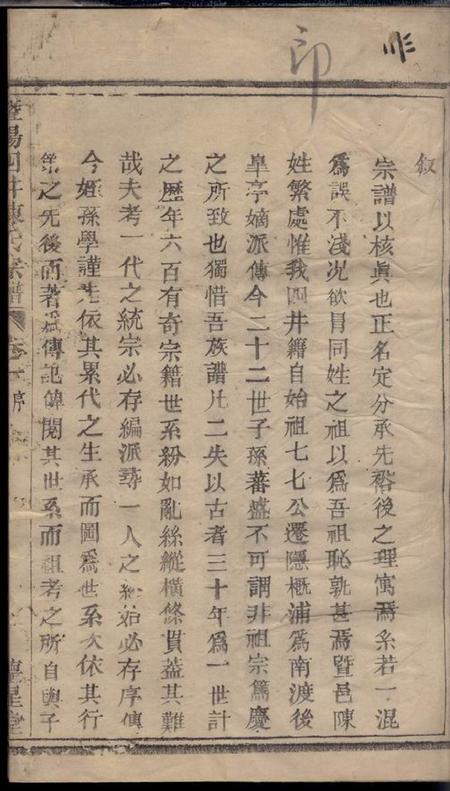 印
叙
宗譜以核眞也正名定分承先裕後之理寓焉糸若一混
爲誤不淺况欲冐同姓之祖以爲吾祖恥孰甚焉暨邑陳
姓繁處惟我四井籍自始祖七七公遷隱概浦爲南渡後
皐亭嫡派傳今二十二世子孫蕃盛不可謂非祖宗篤慶
之所致也獨惜吾族譜凡二失以古者三十年爲一世計
之歷年六百有奇宗籍世系紛如亂絲縱橫條貫葢其難
哉夫考一代之統宗必存編派尋一人之終始必存序傳
今姪孫學謹先依其累代之生承而圖爲世系次依其行
第之先後而著爲傳記俾閱其世系而祖考之所自與子
暨陽四井陳氏宗譜 卷一 序
聚星堂